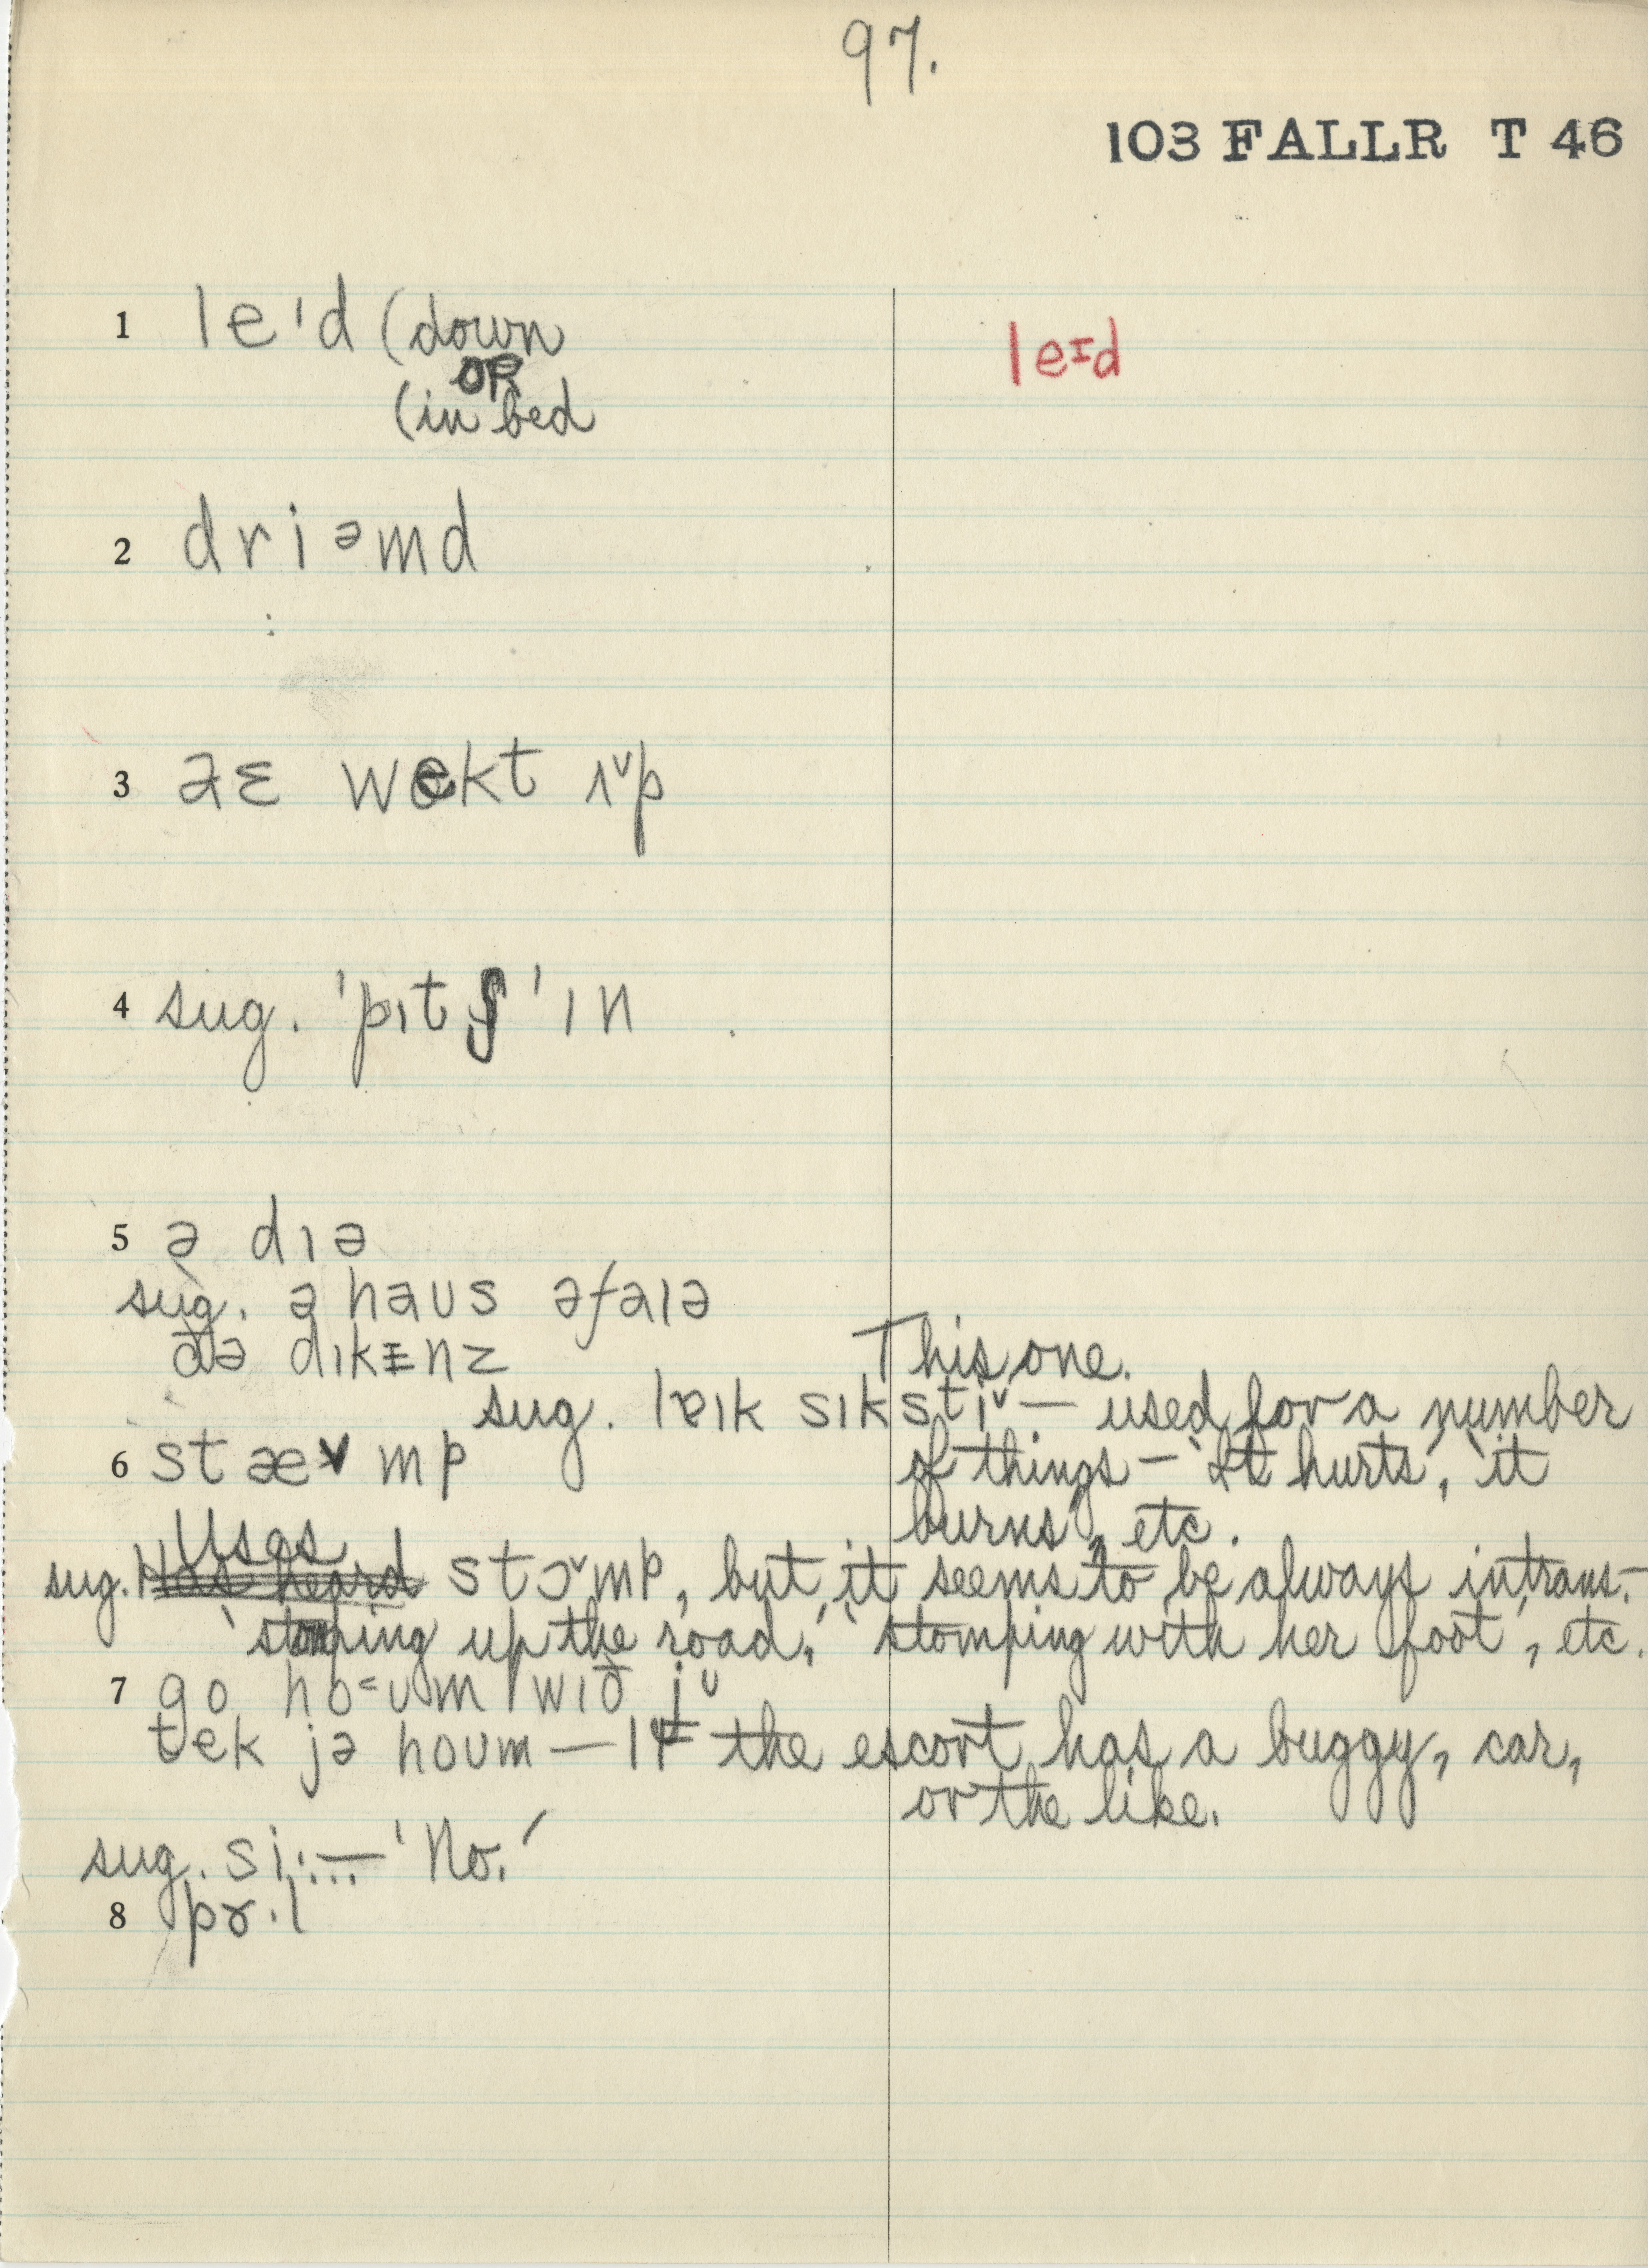 97.
103 FALLR T 46
1 leˈd (down
OR
(in bed
leɪd
2 driəmd
3 əɛ wekt ʌ˅p
4 sug. 'pɪtʃ 'ɪn
5 ə dɪə
sug. ə haus əfaɪə
ðə dɪkᵻnz This one.
sug. lɐɪk sɪksti˅ — used for a number
6 stæ˅mp of things — 'It hurts', 'it
burns', etc.
Uses
sug. Has heard stɔ˅mp, but it seems to be always intrans. –
'stomping up the road,' 'stomping with her foot', etc.
7 go ho˂ʊm wɪð jᵘ
tek jə hoʊm — If the escort has a buggy, car,
or the like.
sug. si:— 'No.'
8 pɤ·l